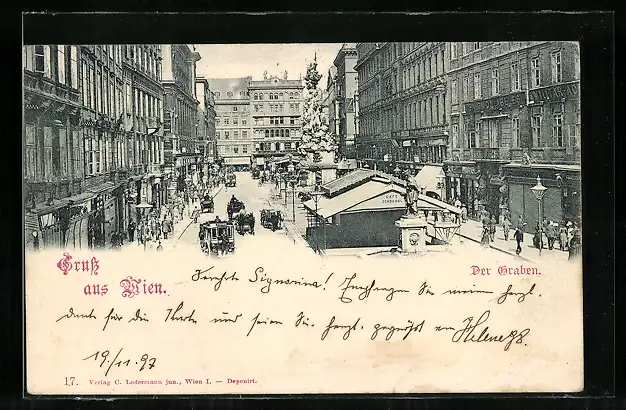 Gruß
aus Wien.
Der Graben.
Signorina! Empfangen Sie meinen herzl.
dank für die Karte und seien Sie herzl. gegrüßt von Helene
19/11. 97
17. Verlag C. Ledermann jun., Wien I. — Deponirt.